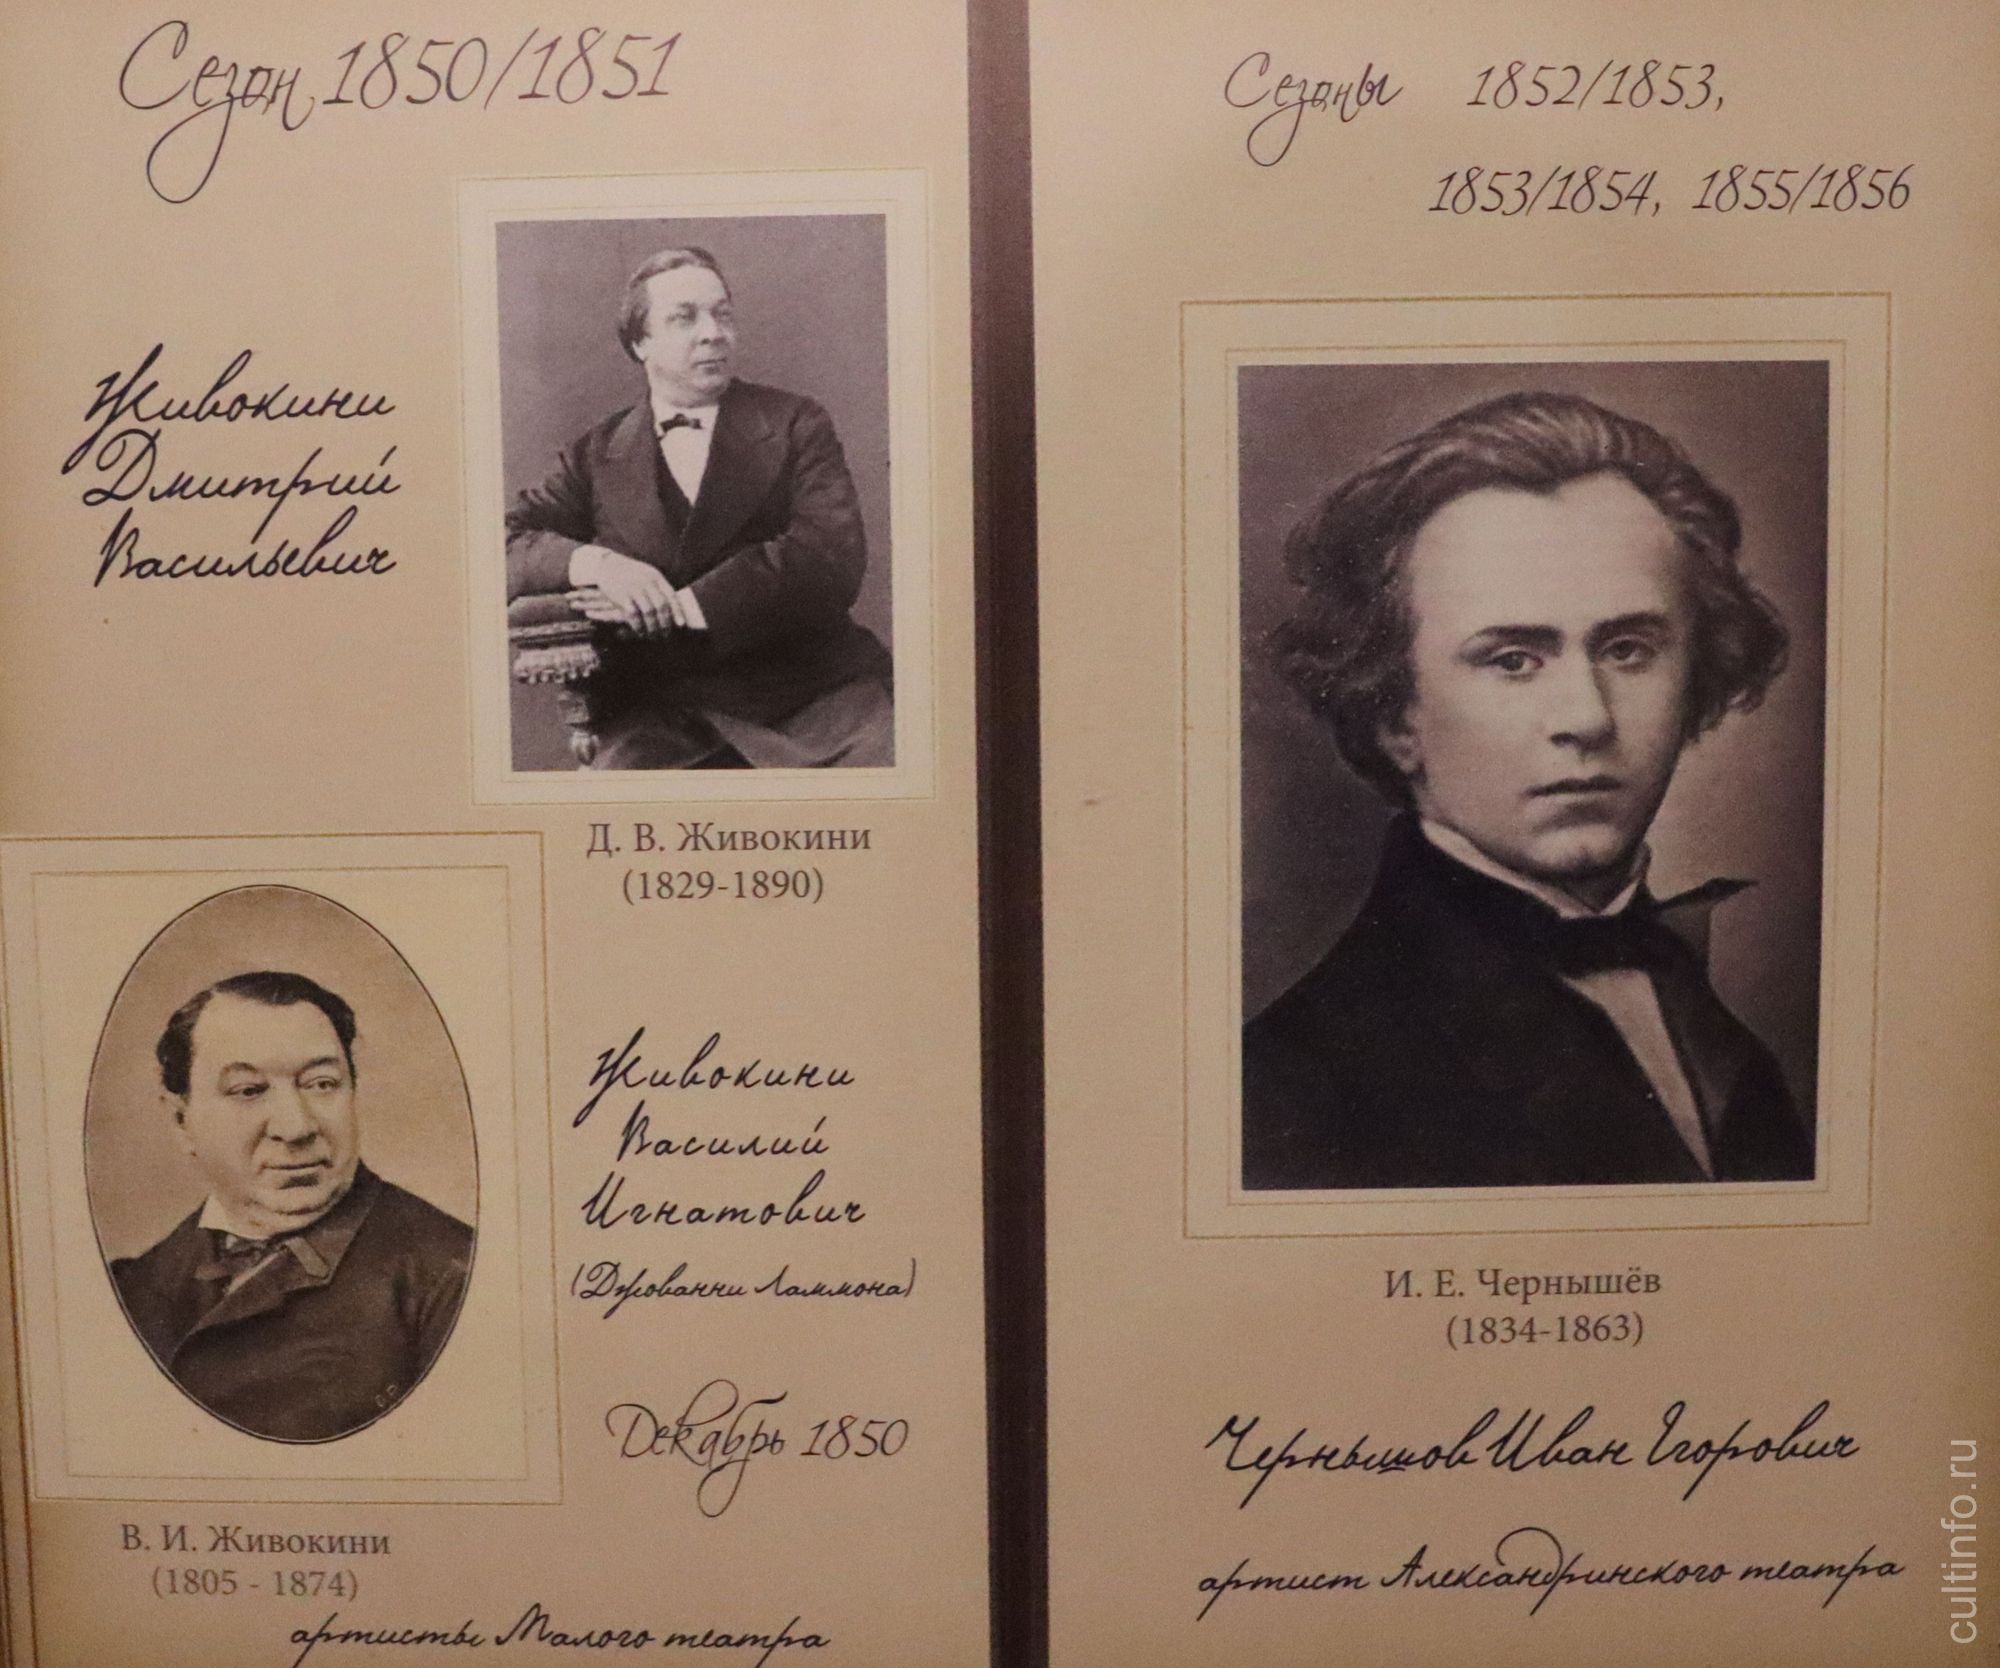 Сезон 1850/1851
Живокини
Дмитрий
Васильевич
Д. В. Живокини
(1829-1890)
Живокини
Василий
Игнатович
(Джованни Ламмона)
Декабрь 1850
В. И. Живокини
(1805 - 1874)
артисты Малого театра
Сезоны 1852/1853,
1853/1854, 1855/1856
И. Е. Чернышёв
(1834-1863)
Чернышов Иван Егорович
артист Александринского театра
cultinfo.ru